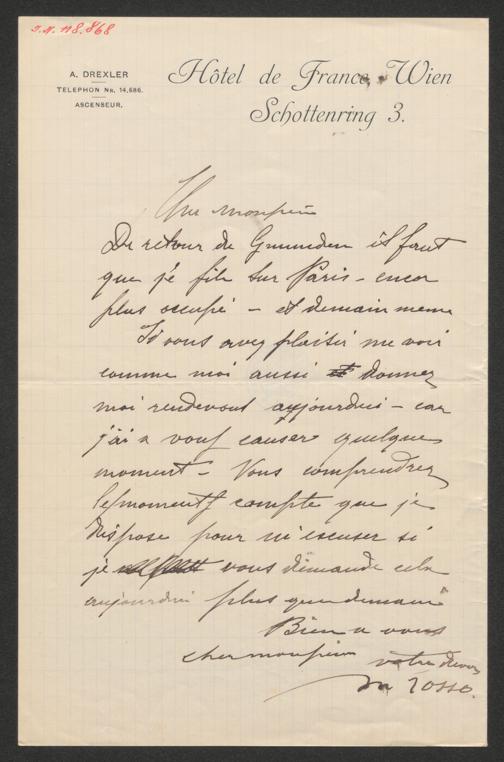 I.N. 118.868
A. DREXLER
TELEPHON No. 14,686.
ASCENSEUR.
Hôtel de France, Wien
Schottenring 3.
monsieur
De retour de Gmunden il faut
que je file sur Paris - encor
plus occupé - et demain meme
Si vous avez plaisir me voir
comme moi aussi donnez
moi rendevous aujourdui - car
j'ai a vous causer quelque
moment - Vous comprendrez
les moments compte que je
dispose pour m'escuser si
je vous demande cela
aujourdui plus que demain
Bien a vous
cher monsieur votre
Rosso.